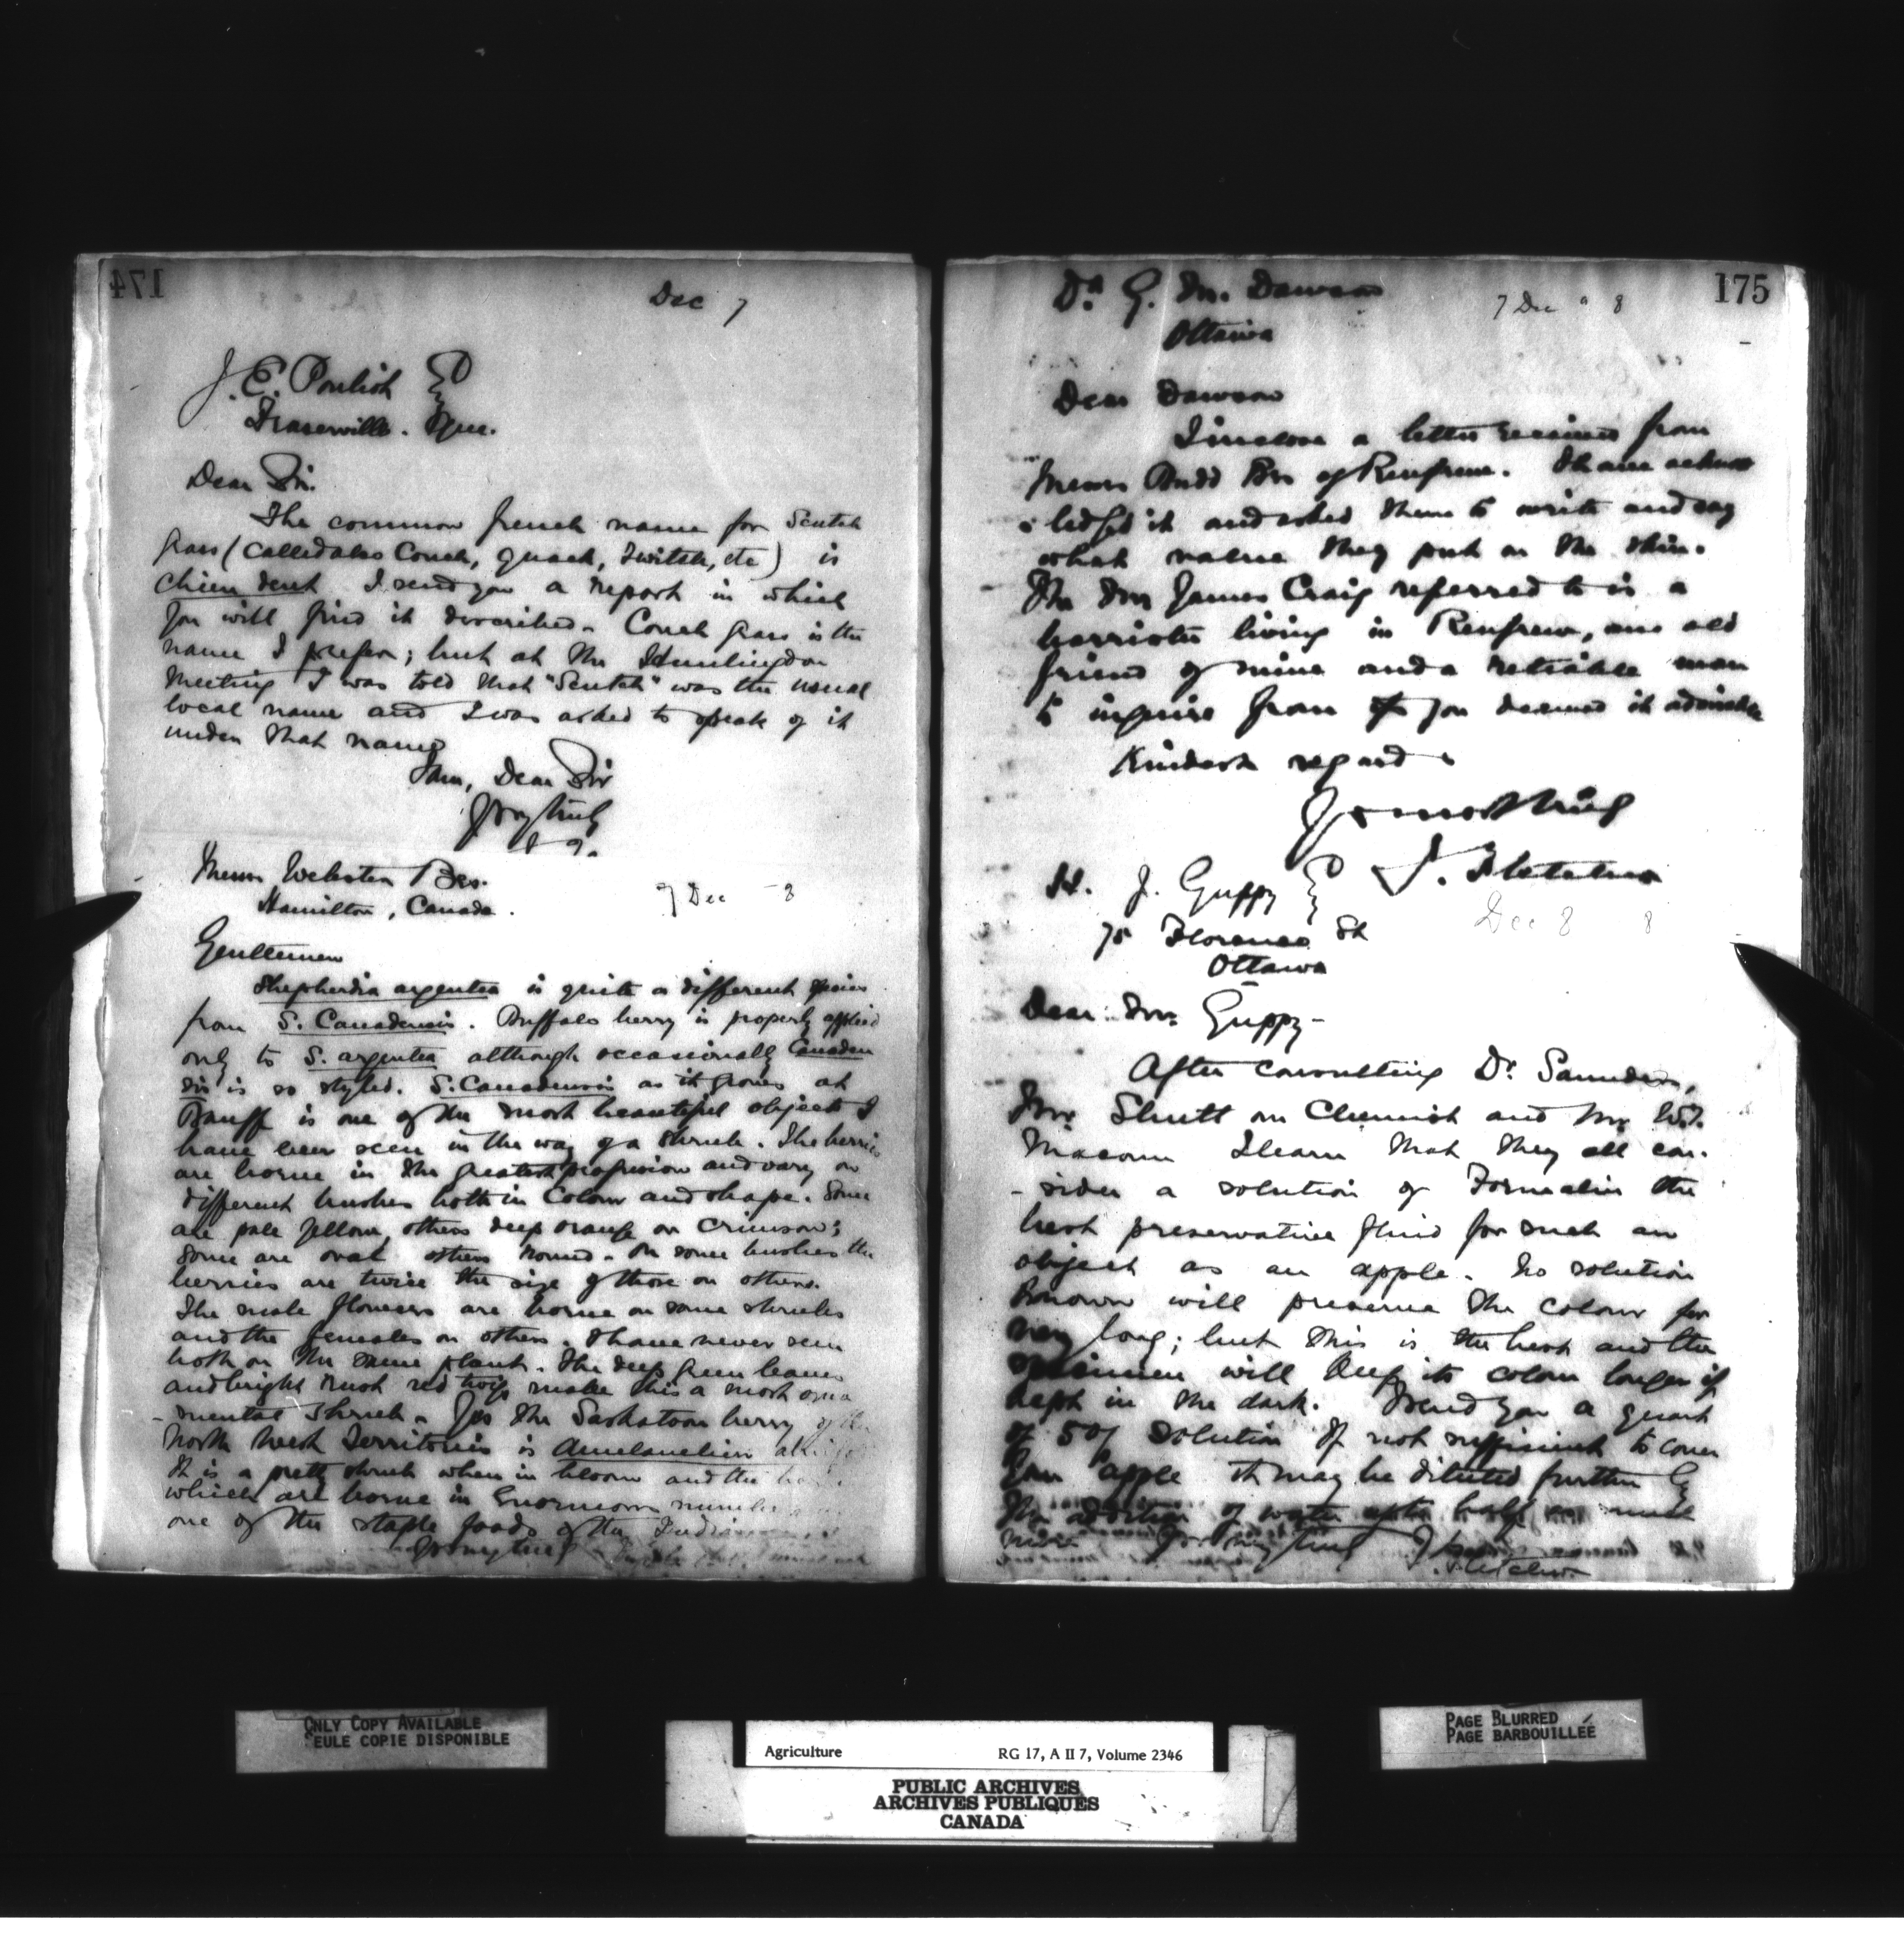 174
Dec 7
J. E. Pouliot Esq
Fraserville. Que.
Dear Sir.
The common french name for Scutch
Grass (called also Couch, Quack, Twitch, etc) is
Chien dent I send you a report in which
you will find it described. Couch Grass is the
name I prefer; but at the Huntingdon
Meeting I was told that "Scutch" was the usual
local name and I was asked to speak of it
under that name
I am, Dear Sir
Yrs very truly
J F.
Messrs Webster Bros.
Hamilton, Canada.
7 Dec 8
Gentlemen
Shepherdia argentea is quite a different species
from S. Canadensis. Buffalo berry is properly applied
only to S. argentea although occasionally Canaden
sis is so styled. S. Canadensis as it grows at
Banff is one of the most beautiful objects I
have ever seen in the way of a shrub. The berries
are borne in the greatest profusion and vary on
different bushes both in Colour and shape. Some
are pale yellow, others deep orange or crimson;
some are oval others round. On some bushes the
berries are twice the size of those on others.
The male flowers are borne on some shrubs
and the females on others. I have never seen
both on the same plant. The deep green leaves
and bright rust red twigs make this a most orna
-mental shrub. Yes the Saskatoon berry of the
North West Territories is Amelanchier
It is a pretty shrub when in bloom and the
which are borne in Enormous numbers
one of the staple foods of the Indians
Yrs very truly
175
Dr. G. M. Dawson
7 Dec 8
Ottawa
Dear Dawson
I inclose a letter received from
Messrs Budd Bros of Renfrew. I have acknow
-ledged it and asked them to write and say
what value they put on the skin.
The Mr James Craig referred to is a
barrister living in Renfrew, an old
friend of mine and a reliable man
to inquire from if you deemed it advisable
Kindest regards
Yours truly
J. Fletcher
H. J. Guppy Esq
Dec 8 8
75 Florence St
Ottawa
Dear Mr. Guppy-
After consulting Dr. Saunders,
Mr. Shutt our Chemist and Mr W.T.
Macoun I learn that they all con-
-sider a solution of Formalin the
best preservative fluid for such an
object as an apple. No solution
Known will preserve the colour for
very long; but this is the best and the
specimen will keep its colour longer if
kept in the dark. I send you a quart
of 5% solution If not sufficient to cover
your apple it may be diluted further by
the addition of water up to half as much
more Yrs very truly
J. Fletcher.
ONLY COPY AVAILABLE
SEULE COPIE DISPONIBLE
Agriculture RG 17, A II 7, Volume 2346
PUBLIC ARCHIVES
ARCHIVES PUBLIQUES
CANADA
PAGE BLURRED
PAGE BARBOUILLÉE